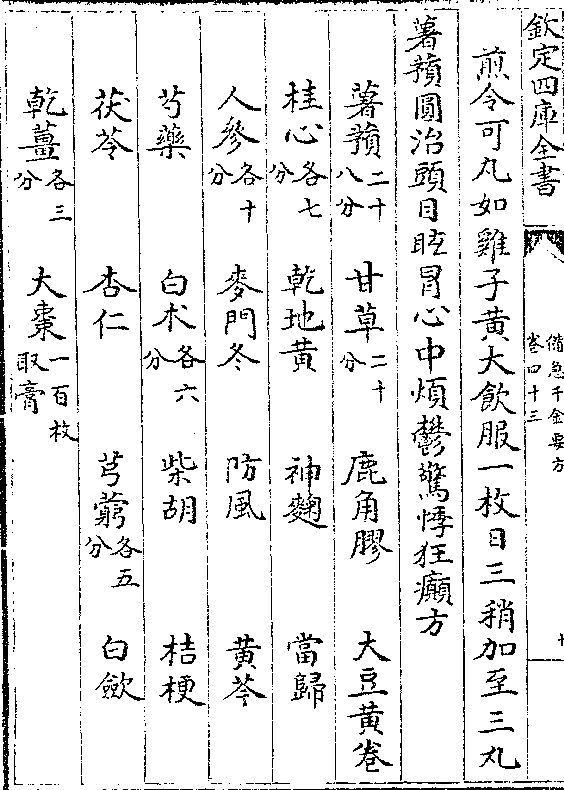 欽定四庫全書
備急千金要方
卷四十三
十
煎令可丸如雞子黃大飲服一枚日三稍加至三丸
薯蕷圓治頭目眩冒心中煩鬱驚悸狂癲方
薯蕷二十八分 甘草二十分 鹿角膠 大豆黃卷
桂心各七分 乾地黃 神麴 當歸
人參各十分 麥門冬 防風 黃芩
芍藥 白朮各六分 柴胡 桔梗
茯苓 杏仁 芎藭各五分 白歛
乾薑各三分 大棗一百枚取膏